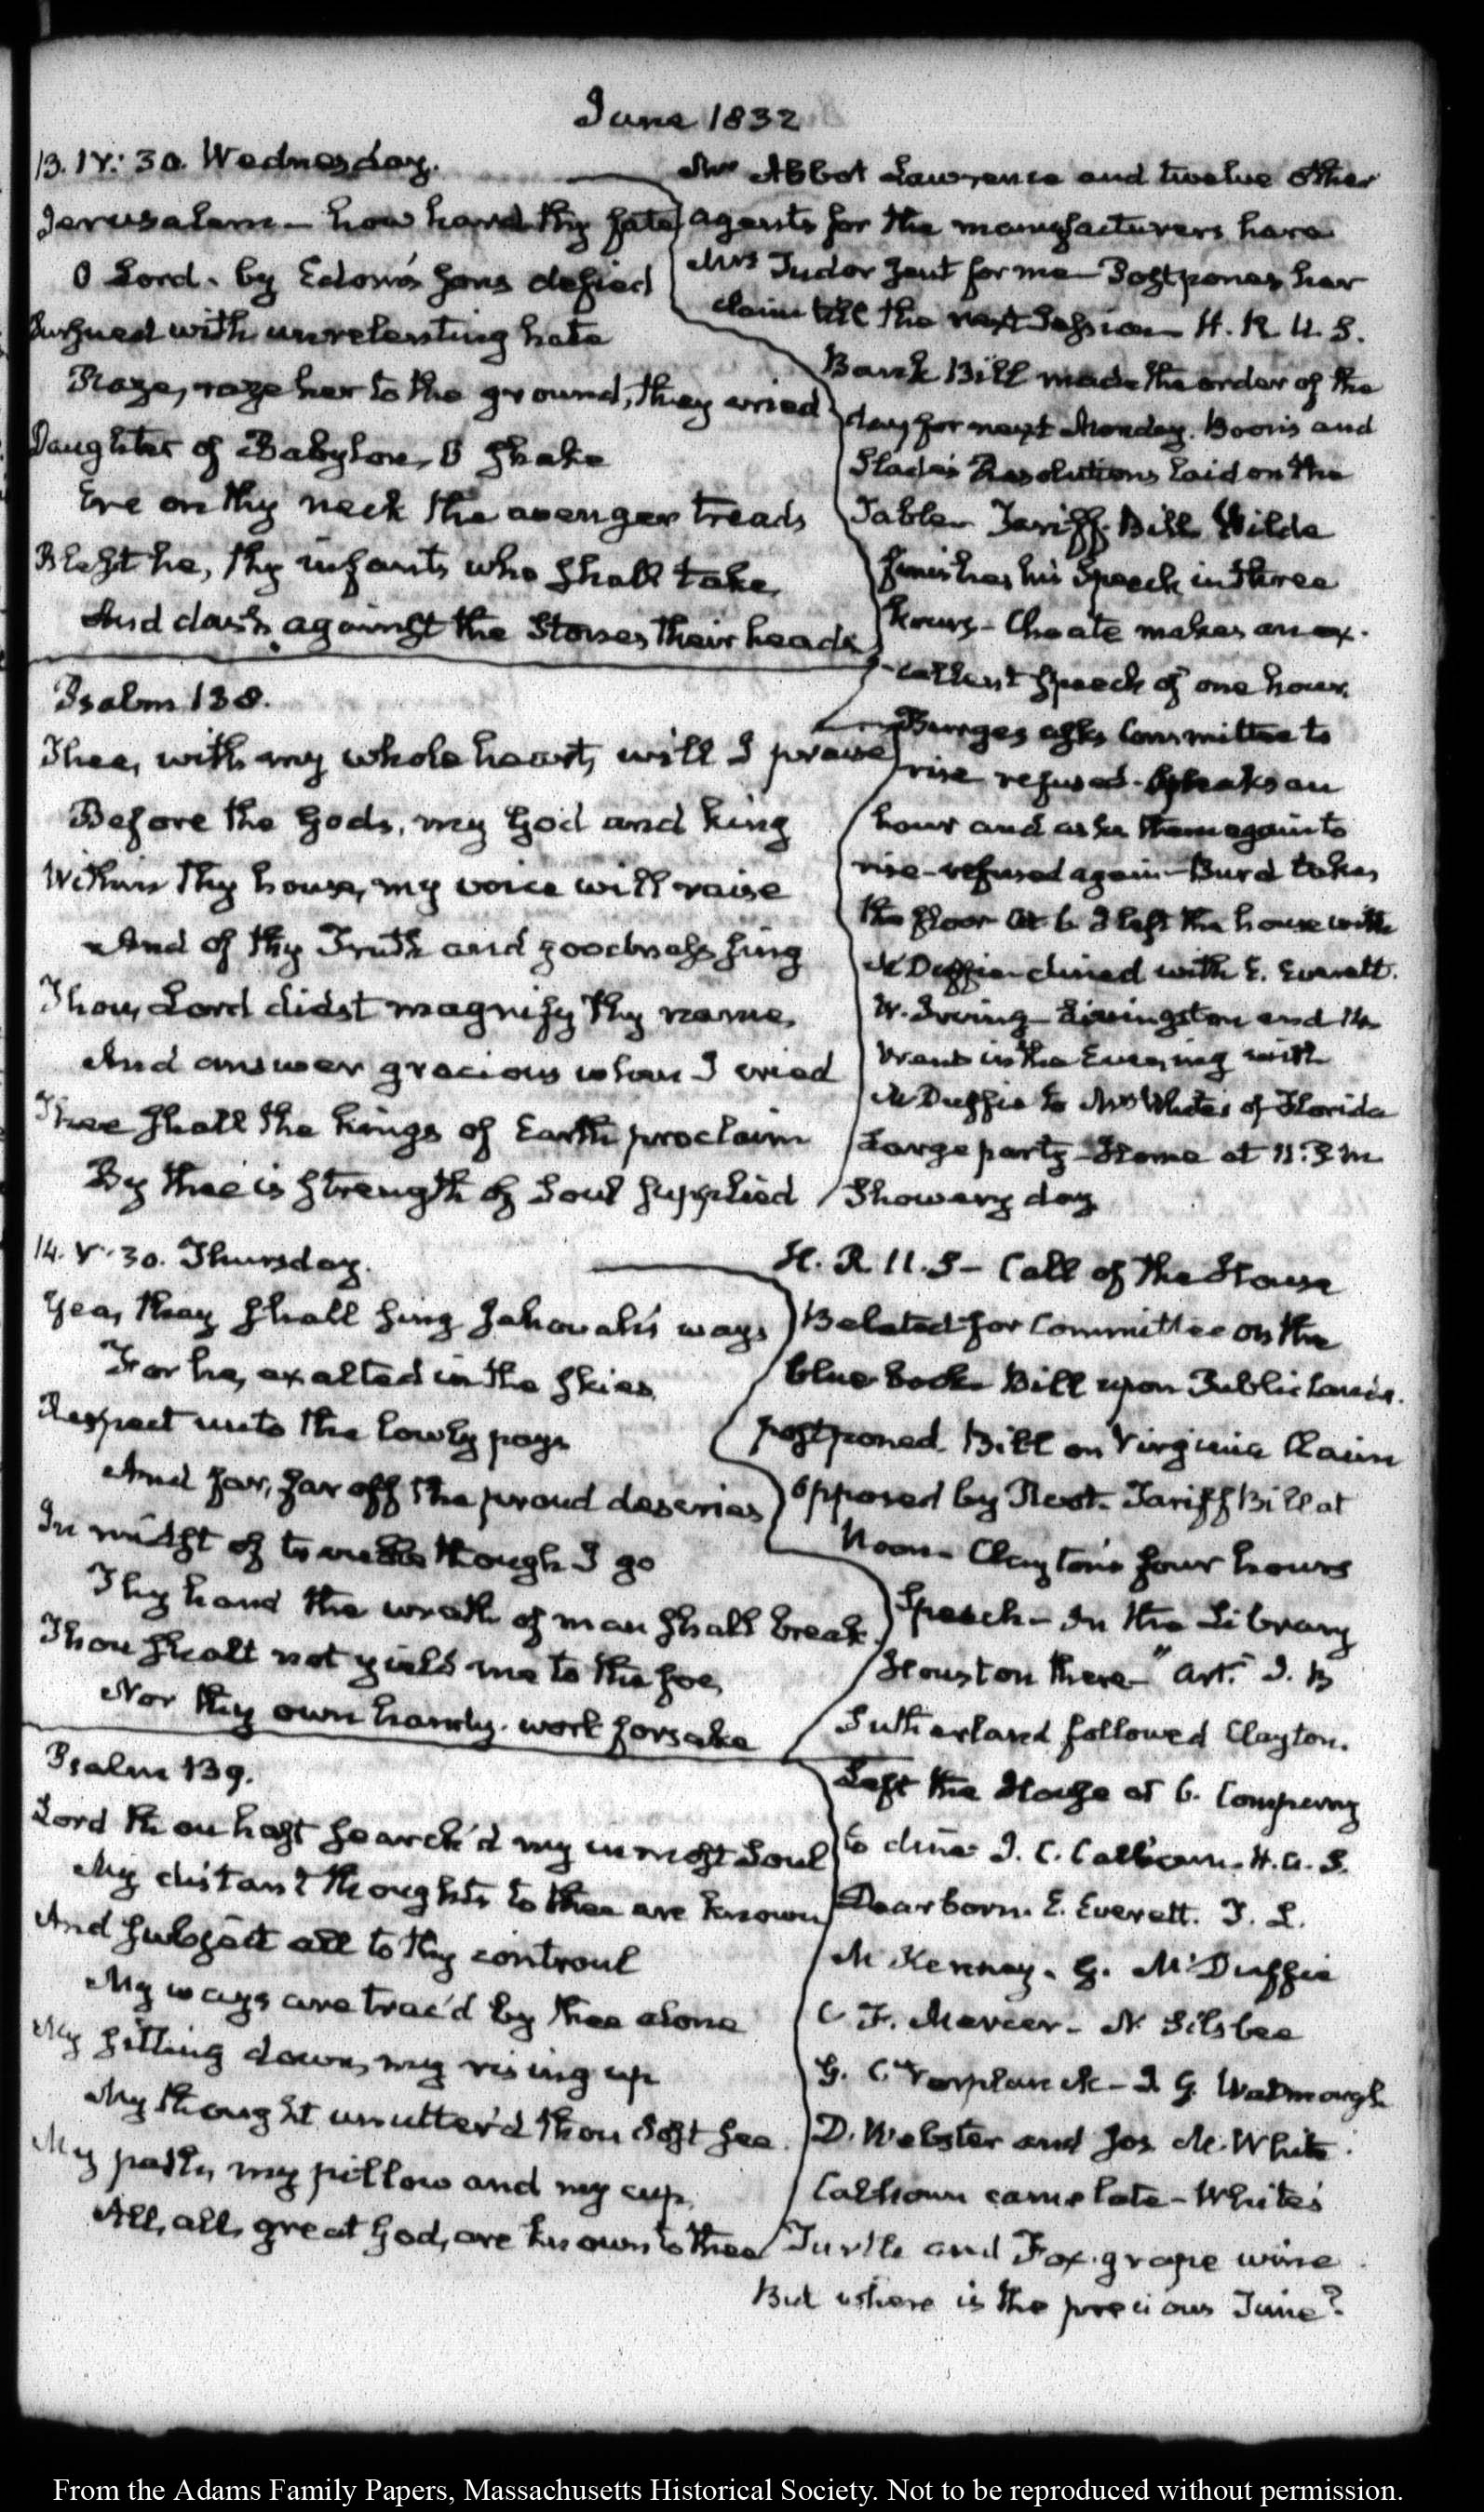 June 1832
13. IV: 30. Wednesday.
Jerusalem - how hard thy fate
O Lord. by Edom's sons defied
Pursued with unrelenting hate
Raze, raze her to the ground, they cried
Daughter of Babylon, O shake
Ere on thy neck the avenger treads
Blest he, thy infants who shall take,
And dash against the stones their heads
Psalm 138.
Thee, with my whole heart, will I praise
Before the Gods, my God and king
Within thy house, my voice will raise
And of thy Truth and goodness sing
Thou, Lord didst magnify thy name,
And answer gracious when I cried
Thee shall the kings of Earth proclaim
By thee is strength of Soul supplied
Mr Abbot Lawrence and twelve other
agents for the manufacturers here
Mrs Tudor sent for me - Postpones her
claim till the next Session - H. R U. S.
Bank Bill made the order of the
day for next Monday. Boon's and
Slade's Resolutions laid on the
Table - Tariff Bill Wilde
finishes his Speech in three
hours - Choate makes an ex-
-cellent speech of one hour.
Burges asks Committee to
rise refused - speaks an
hour and asks them again to
rise - refused again - Burd takes
the floor at 6 I left the house with
McDuffie dined with E. Everett.
W. Irving - Livingston and 14
Went in the Evening with
McDuffie to Mrs White's of Florida
Large party - Home at 11. P.M
Showery day
14. V. 30. Thursday.
Yea, they shall sing Jehovah's ways
For he, exalted in the skies
Respect unto the lowly pays
And far, far off the proud descries
In midst of troubles though I go
Thy hand the wrath of man shall break.
Thou shalt not yield me to the foe,
Nor thy own handy-work forsake
Psalm 139.
Lord thou hast search'd my inmost Soul
My distant thoughts to thee are known
And subject all to thy controul
My ways are trac'd by thee alone
My sitting down, my rising up
My thought unutter'd thou dost see.
My path, my pillow and my cup,
All, all, great God, are known to thee
H. R. U. S - Call of the House
Balloted for Committee on the
blue book Bill upon Public lands.
postponed. Bill on Virginia Claim
opposed by Root. Tariff Bill at
Noon - Clayton's four hours
Speech - In the Library
Houston there - "Art." J. B
Sutherland followed Clayton.
Left the House at 6. Company
to dine J. C. Calhoun. H. A. S.
Dearborn. E. Everett. T. L.
McKenney. G. McDuffie
C. F. Mercer - N. Silsbee
G. C. Verplanck - J. G. Watmough
D. Webster and Jos M. White.
Calhoun came late - White's
Turtle and Fox-grape wine.
But where is the precious Time?
From the Adams Family Papers, Massachusetts Historical Society. Not to be reproduced without permission.